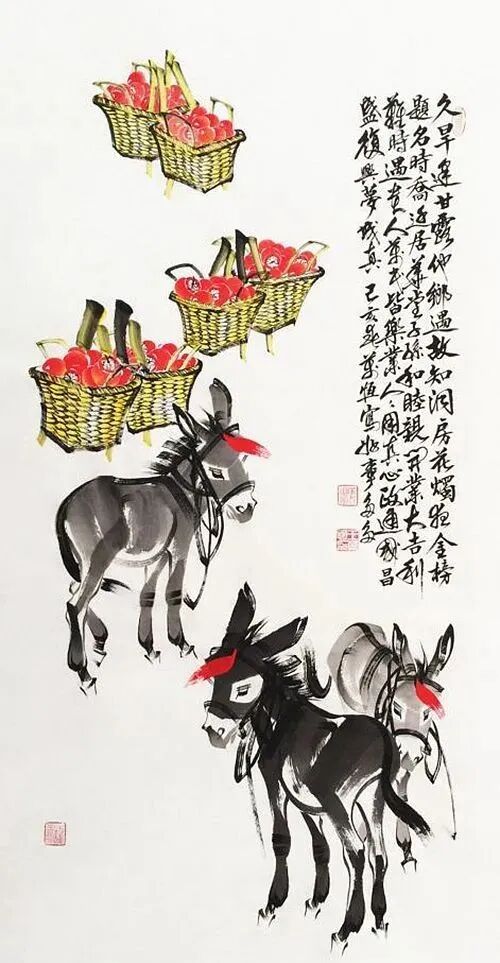 久旱逢甘露他鄉遇故知洞房花燭夜金榜
題名時喬迁居華堂子孫和睦親開業大吉利
難時遇貴人萬民皆樂業人々用真心政通國昌
盛復興夢成真 己亥 萬恆寫好事多多